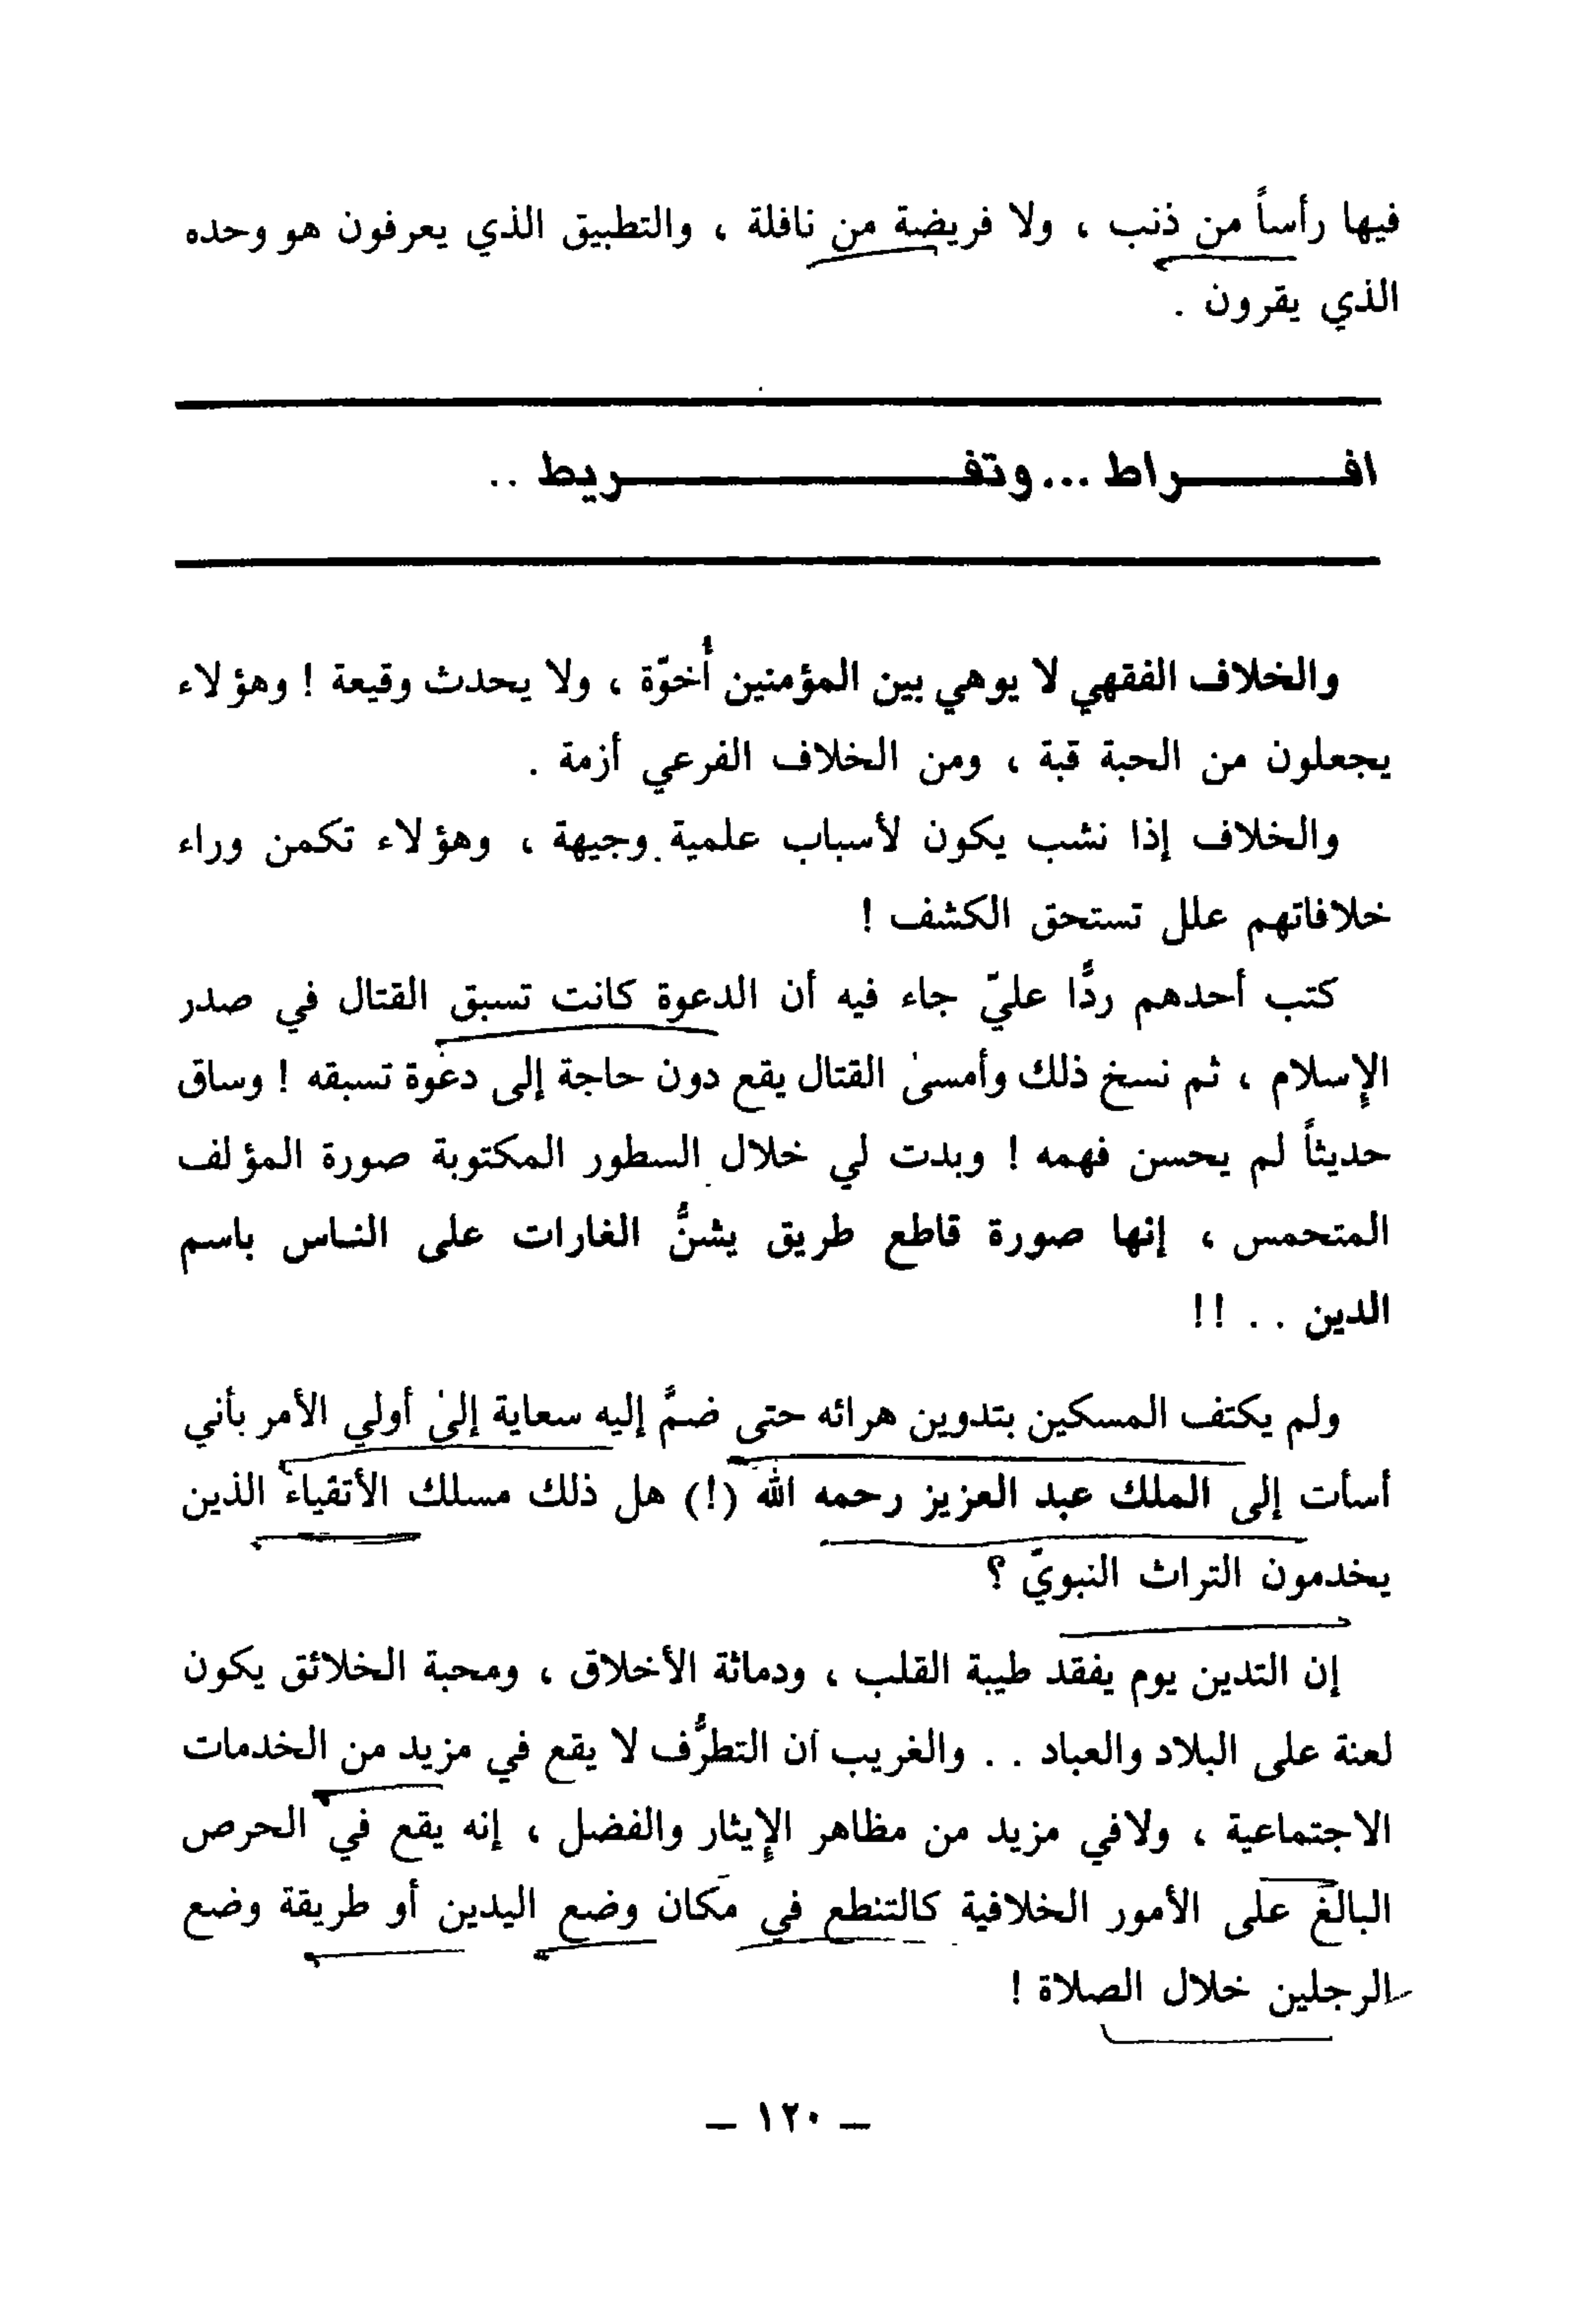 فيها رأساً من ذنب ، ولا فريضة من نافلة ، والتطبيق الذي يعرفون هو وحده
الذي يقرون .
افـــــراط ...وتفـــــــــــريط ..
والخلاف الفقهي لا يوهي بين المؤمنين أُخوّة ، ولا يحدث وقيعة ! وهؤلاء
يجعلون من الحبة قبة ، ومن الخلاف الفرعي أزمة .
والخلاف إذا نشب يكون لأسباب علمية وجيهة ، وهؤلاء تكمن وراء
خلافاتهم علل تستحق الكشف !
كتب أحدهم ردًّا عليّ جاء فيه أن الدعوة كانت تسبق القتال في صدر
الإسلام ، ثم نسخ ذلك وأمسىٰ القتال يقع دون حاجة إلى دعوة تسبقه ! وساق
حديثاً لم يحسن فهمه ! وبدت لي خلال السطور المكتوبة صورة المؤلف
المتحمس ، إنها صورة قاطع طريق يشنُّ الغارات على الناس باسم
الدين . . !!
ولم يكتف المسكين بتدوين هرائه حتى ضمَّ إليه سعاية إلىٰ أولي الأمر بأني
أسأت إلى الملك عبد العزيز رحمه الله (!) هل ذلك مسلك الأتقياء الذين
يخدمون التراث النبويّ ؟
إن التدين يوم يفقد طيبة القلب ، ودماثة الأخلاق ، ومحبة الخلائق يكون
لعنة على البلاد والعباد . . والغريب أن التطرُّف لا يقع في مزيد من الخدمات
الاجتماعية ، ولافي مزيد من مظاهر الإيثار والفضل ، إنه يقع في الحرص
البالغ على الأمور الخلافية كالتنطع في مكان وضع اليدين أو طريقة وضع
الرجلين خلال الصلاة !
– ١٢٠ –